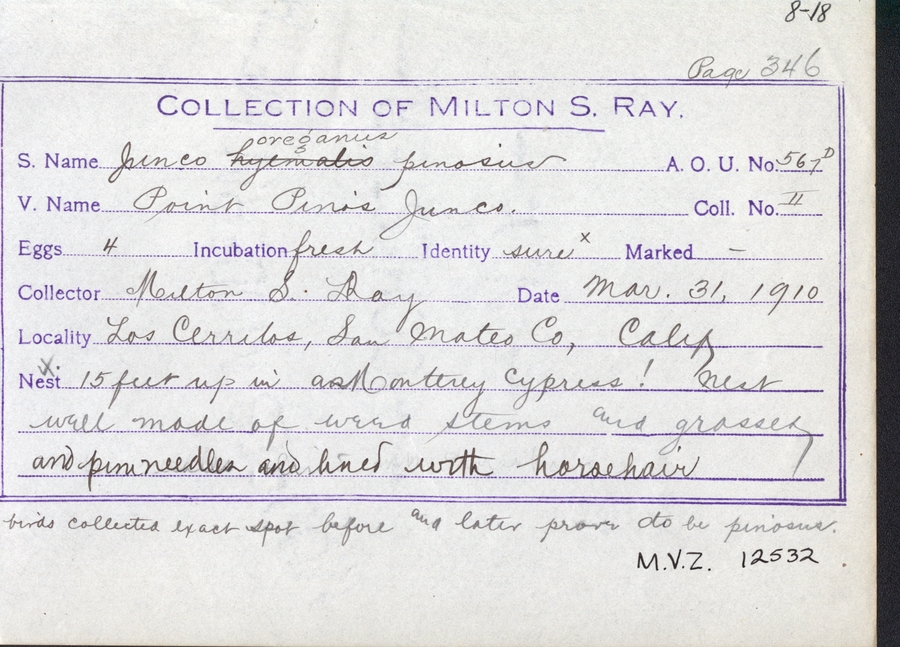 8-18
Page 346
COLLECTION OF MILTON S. RAY.
oreganus
S. Name Junco hyemalis pinosus A. O. U. No. 567D
V. Name Point Pinos Junco. Coll. No. II
Eggs 4 Incubation fresh Identity sure x Marked –
Collector Milton S. Ray Date Mar. 31, 1910
Locality Los Cerritos, San Mateo Co, Calif
x.
Nest 15 feet up in a Monterey cypress! Nest
well made of weed stems and grasses
and pine needles and lined with horsehair
birds collected exact spot before and later prove to be pinosus.
M.V.Z. 12532